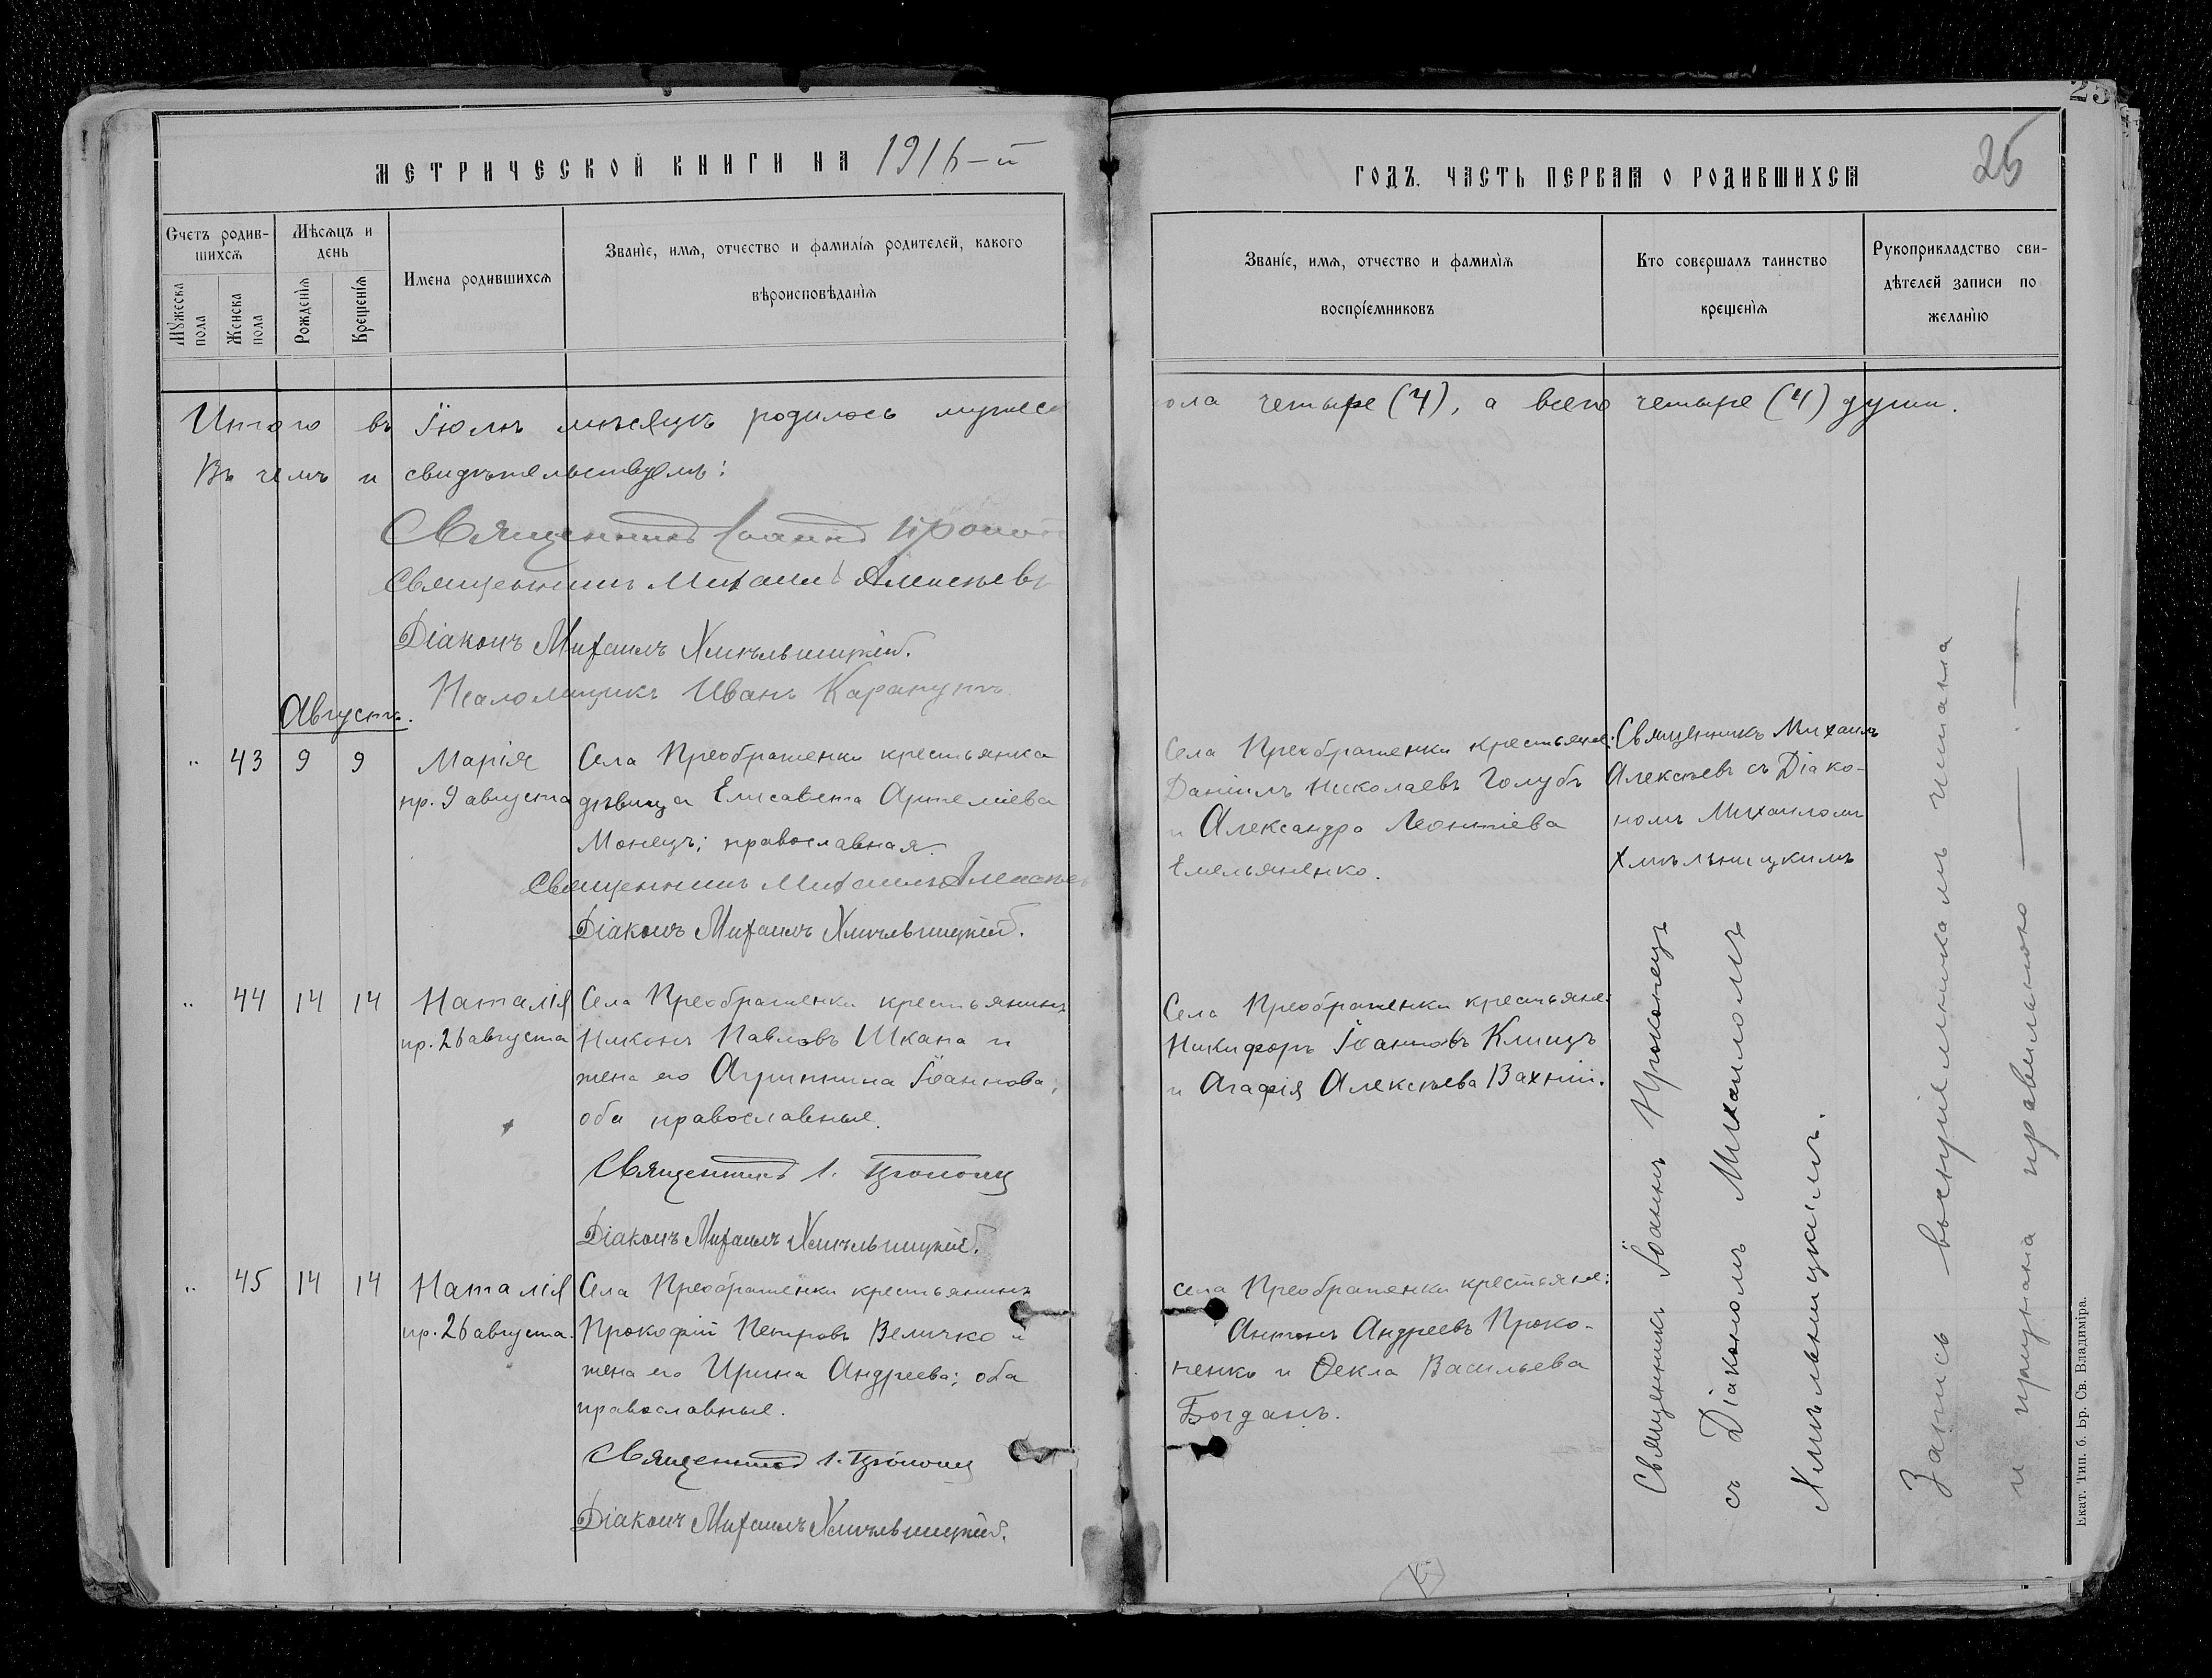 25
МЕТРИЧЕСКОЙ КНИГИ НА 1916-й
ГОДЪ. ЧАСТЬ ПЕРВАЯ О РОДИВШИХСЯ
Счетъ родив-
шихся
Мужеска
пола
Женска
пола
Мѣсяцъ и
день
Рожденія
Крещенія
Имена родившихся
Званіе, имя, отчество и фамилія родителей, какого
вѣроисповѣданія
Званіе, имя, отчество и фамилія
воспріемниковъ
Кто совершалъ таинство
крещенія
Рукоприкладство сви-
дѣтелей записи по
желанію
Итого въ Іюлѣ мѣсяцѣ родилось мужеск
ола четыре (4), а всего четыре (4) души.
Въ чемъ и свидѣтельствуемъ:
Священникъ Іоаннъ
Священникъ Михаилъ Алексѣевъ
Діаконъ Михаилъ Хмѣльницкій.
Псаломщикъ Иванъ
Августъ.
" 43 9 9
Марія
пр. 9 августа
Села Преображенки крестьянка
дѣвица Елисавета Артеміева
Монецъ; православная.
Священникъ Михаилъ Алексѣев
Діаконъ Михаилъ Хмѣльницкій.
Села Преображенки крестьяне:
Даніилъ Николаевъ Голубъ
и Александра Леонтіева
Емельяненко.
Священникъ Михаилъ
Алексѣевъ съ Діако-
номъ Михаиломъ
Хмѣльницкимъ
" 44 14 14
Наталія
пр. 26 августа
Села Преображенки крестьянинъ
Никонъ Павловъ Шкапа и
жена его Агриппина Іоаннова;
оба православные.
Священникъ І. Цроконец
Діаконъ Михаилъ Хмѣльницкій.
Села Преображенки крестьяне:
Никифоръ Іоанновъ Клищъ
и Агафія Алексѣева Вахній.
" 45 14 14
Наталія
пр. 26 августа.
Села Преображенки крестьянинъ
Прокофій Петровъ Величко и
жена его Ирина Андреева; оба
православные.
Священникъ І.
Діаконъ Михаилъ Хмѣльницкій.
села Преображенки крестьяне:
Антонъ Андреевъ Проко-
пенко и Ѳекла Васильева
Богданъ.
Священникъ Іоаннъ
съ Діакономъ Михаиломъ
Хмѣльницкимъ.
Запись воспріемникамъ читана
и признана правильною
Екат. Тип. б. Бр. Св. Владиміра.